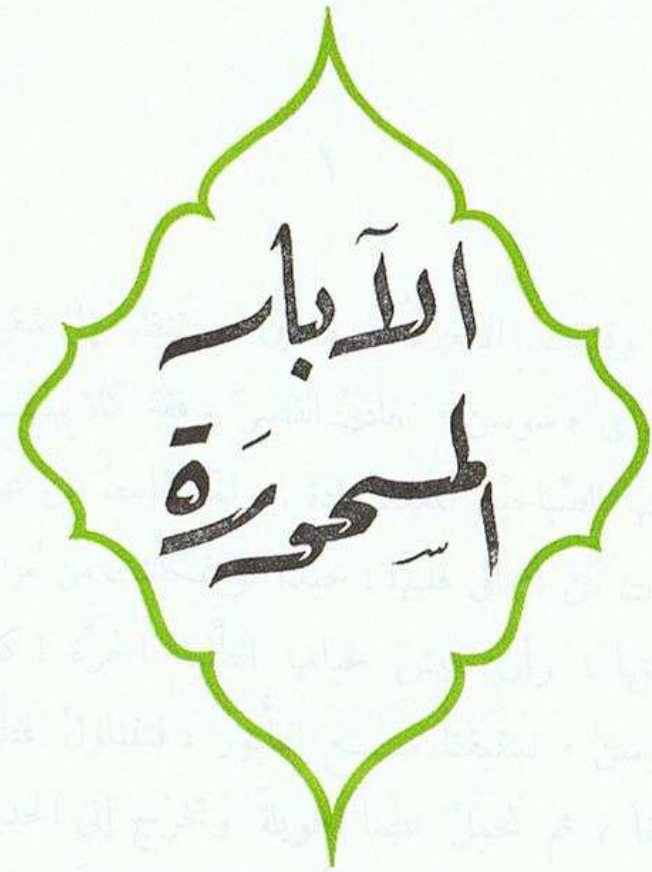 الآبار
المسحورَة